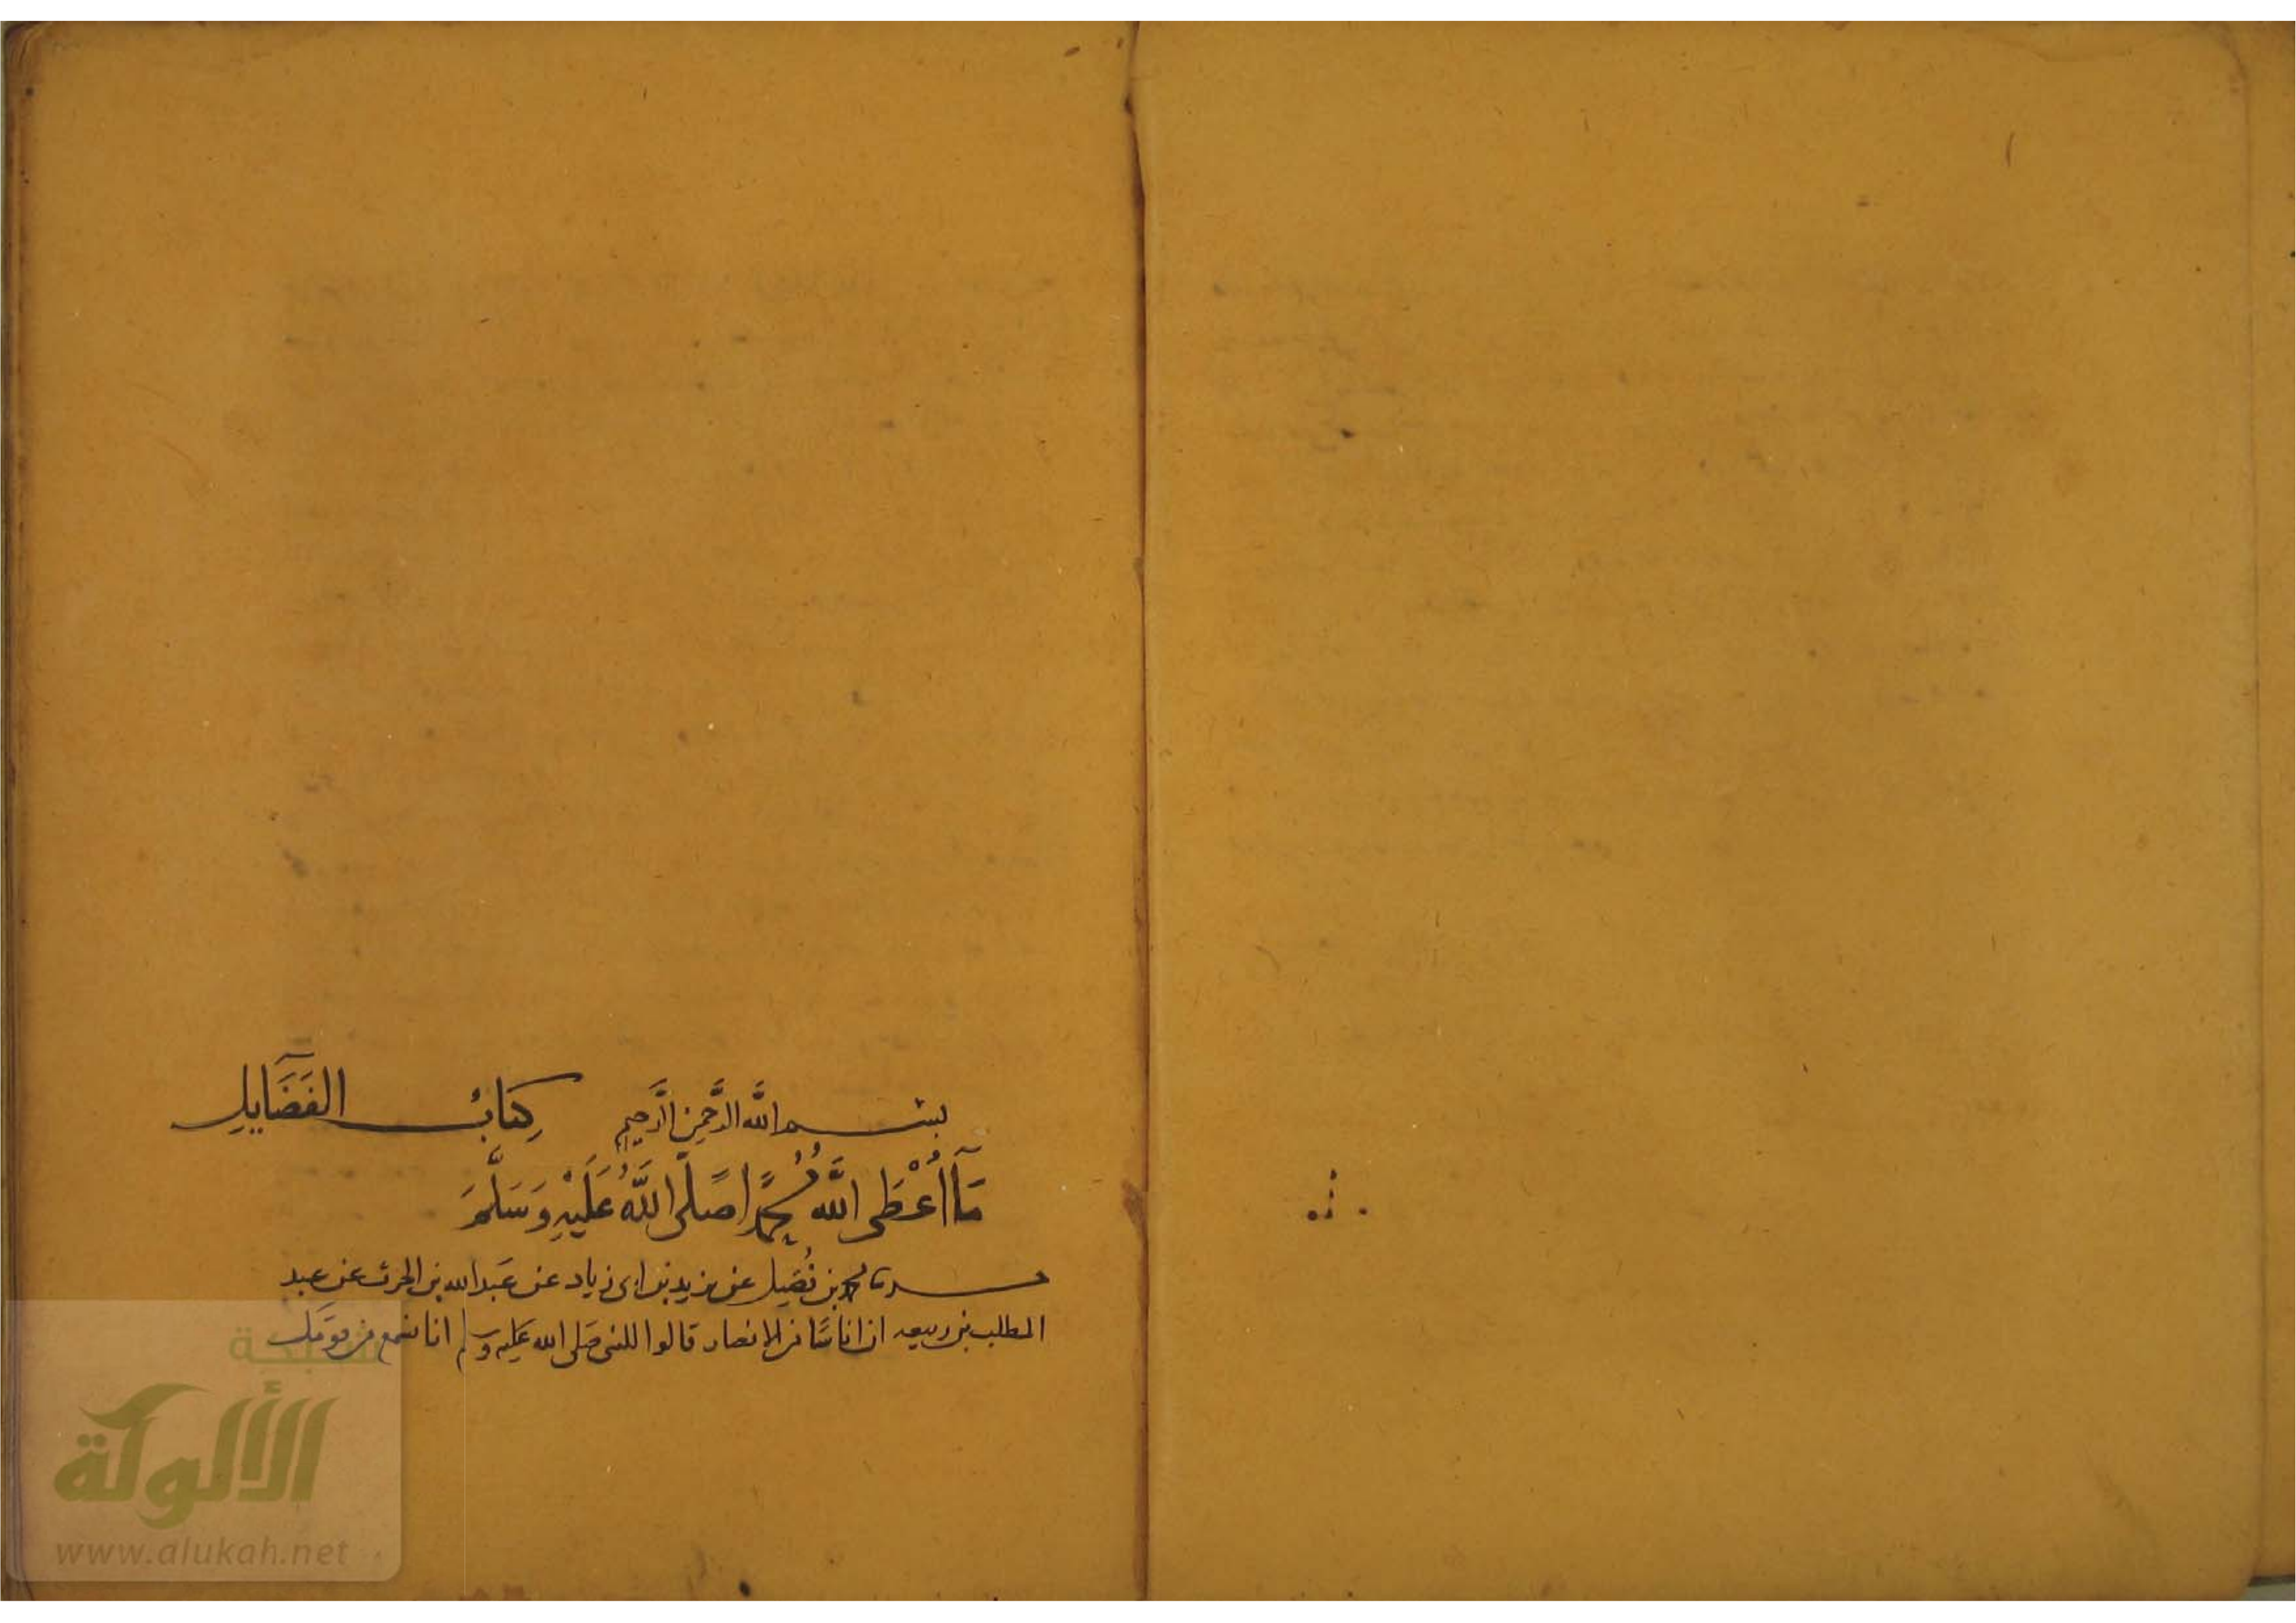 بسم الله الرحمن الرحيم كتاب الفضايل
مَآ أُعْطَى اللَّه مُحمَّدًا صَلَّى اللَّهُ عَلَيْهِ وَسَلَّمَ
حدثنا محمد بن فُضَيل عن يزيد بن ابى زياد عن عبد الله بن الحرث عن عبد
المطلب بن ربيعه ان اناسًا من الانصار قالوا للنبى صلى الله عليه وسلم انا نسمع من قومك
شبكة
الألوكة
www.alukah.net